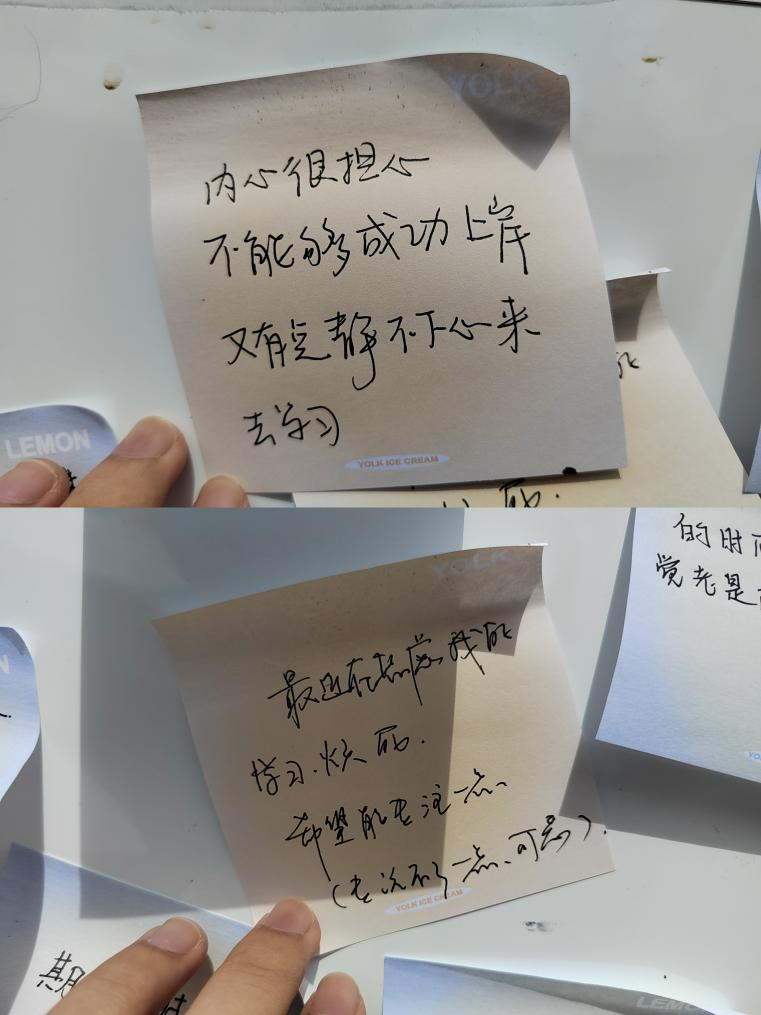 YOLK
内心很担心
不能够成功上岸
又有点静不下心来
去学习
YOLK ICE CREAM
LEMON
能
烦死.
YOLK
最近在焦虑我能
学习.烦死.
希望能专注一点、
(专注不了一点、可恶).
YOLK ICE CREAM
的时
觉老是
期
LEMON